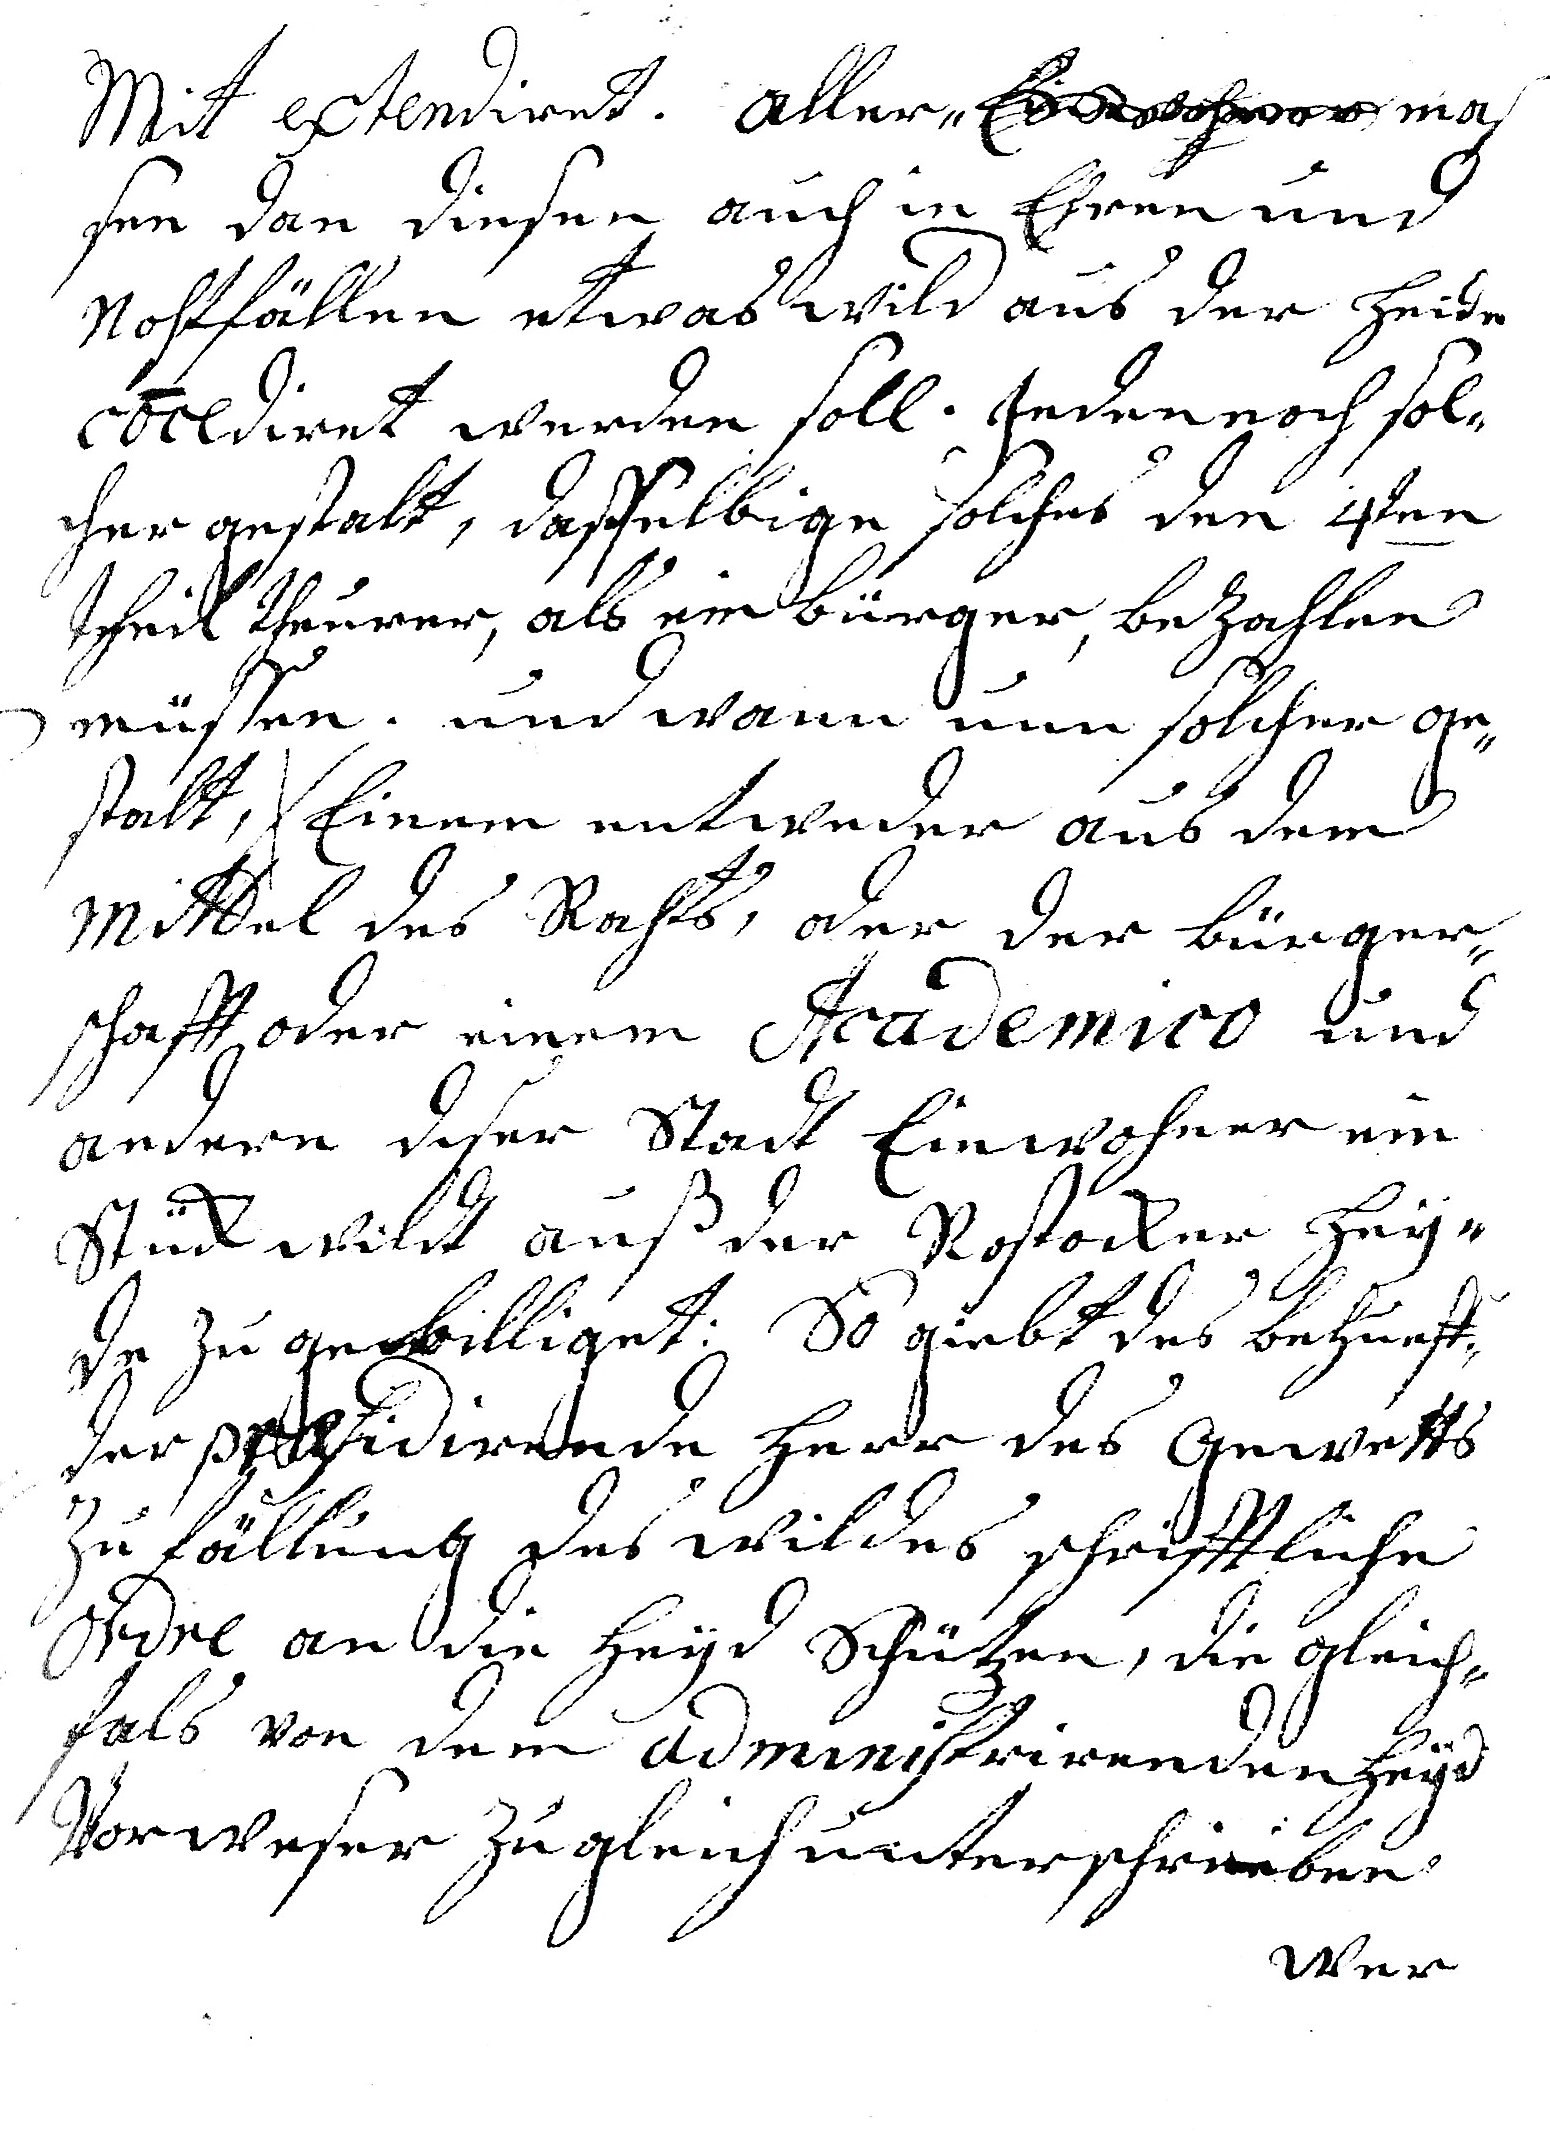 Mit extendiret. Aller„ mas
sen dan diesen auch in Ehren und
Nohtfällen etwas Wild aus der Heide
cōcediret werden soll. Jedennoch sol„
cher gestalt, daß selbige solches den 4ten
theil theurer, als ein bürger, bezahlen
müssen. und wann nun solcher ge„
stalt, Einem entweder aus dem
Mittel des Rahts, oder der bürger„
schafft oder einem Academico und
andern dieser Stadt Einwohner ein
Stück wildt auß der Rostocker Hey„
de zu gebilliget: So giebt des behueff„
der præsidirende Herr des Gewetts
zu fällung des wildes schrifftliche
Ordre an die Heyd Schützen, die gleich„
fals von dem administrirenden Heyd
Vorweser zugleich unterschrieben
wer